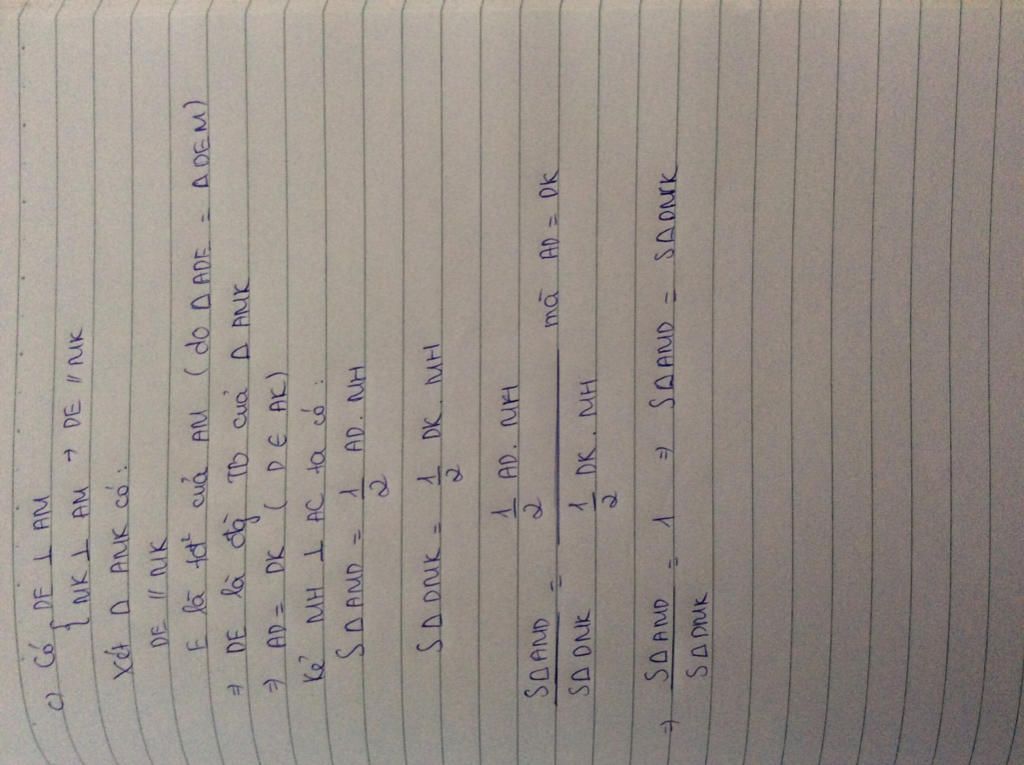 c) Có { DE ⊥ AM
MK ⊥ AM → DE // MK
Xét Δ AMK có:
DE // MK
E là tđ² cuả AM (do Δ ADE = Δ DEM)
⇒ DE là đg̀ TB cuả Δ AMK
⇒ AD = DK (D ∈ AK)
Kẻ MH ⊥ AC ta có:
SΔAMD = 1/2 AD. MH
SΔDMK = 1/2 DK. MH
SΔAMD / SΔDMK = 1/2 AD. MH / 1/2 DK. MH mã AD = DK
⇒ SΔAMD / SΔDMK = 1 ⇒ SΔAMD = SΔDMK